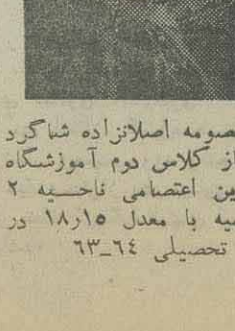 صومه اصلانزاده شاگرد
از کلاس دوم آموزشگاه
ین اعتصامی ناحیه ۲
یه با معدل ۱۸٫۱۵ در
تحصیلی ۶۴_۶۳